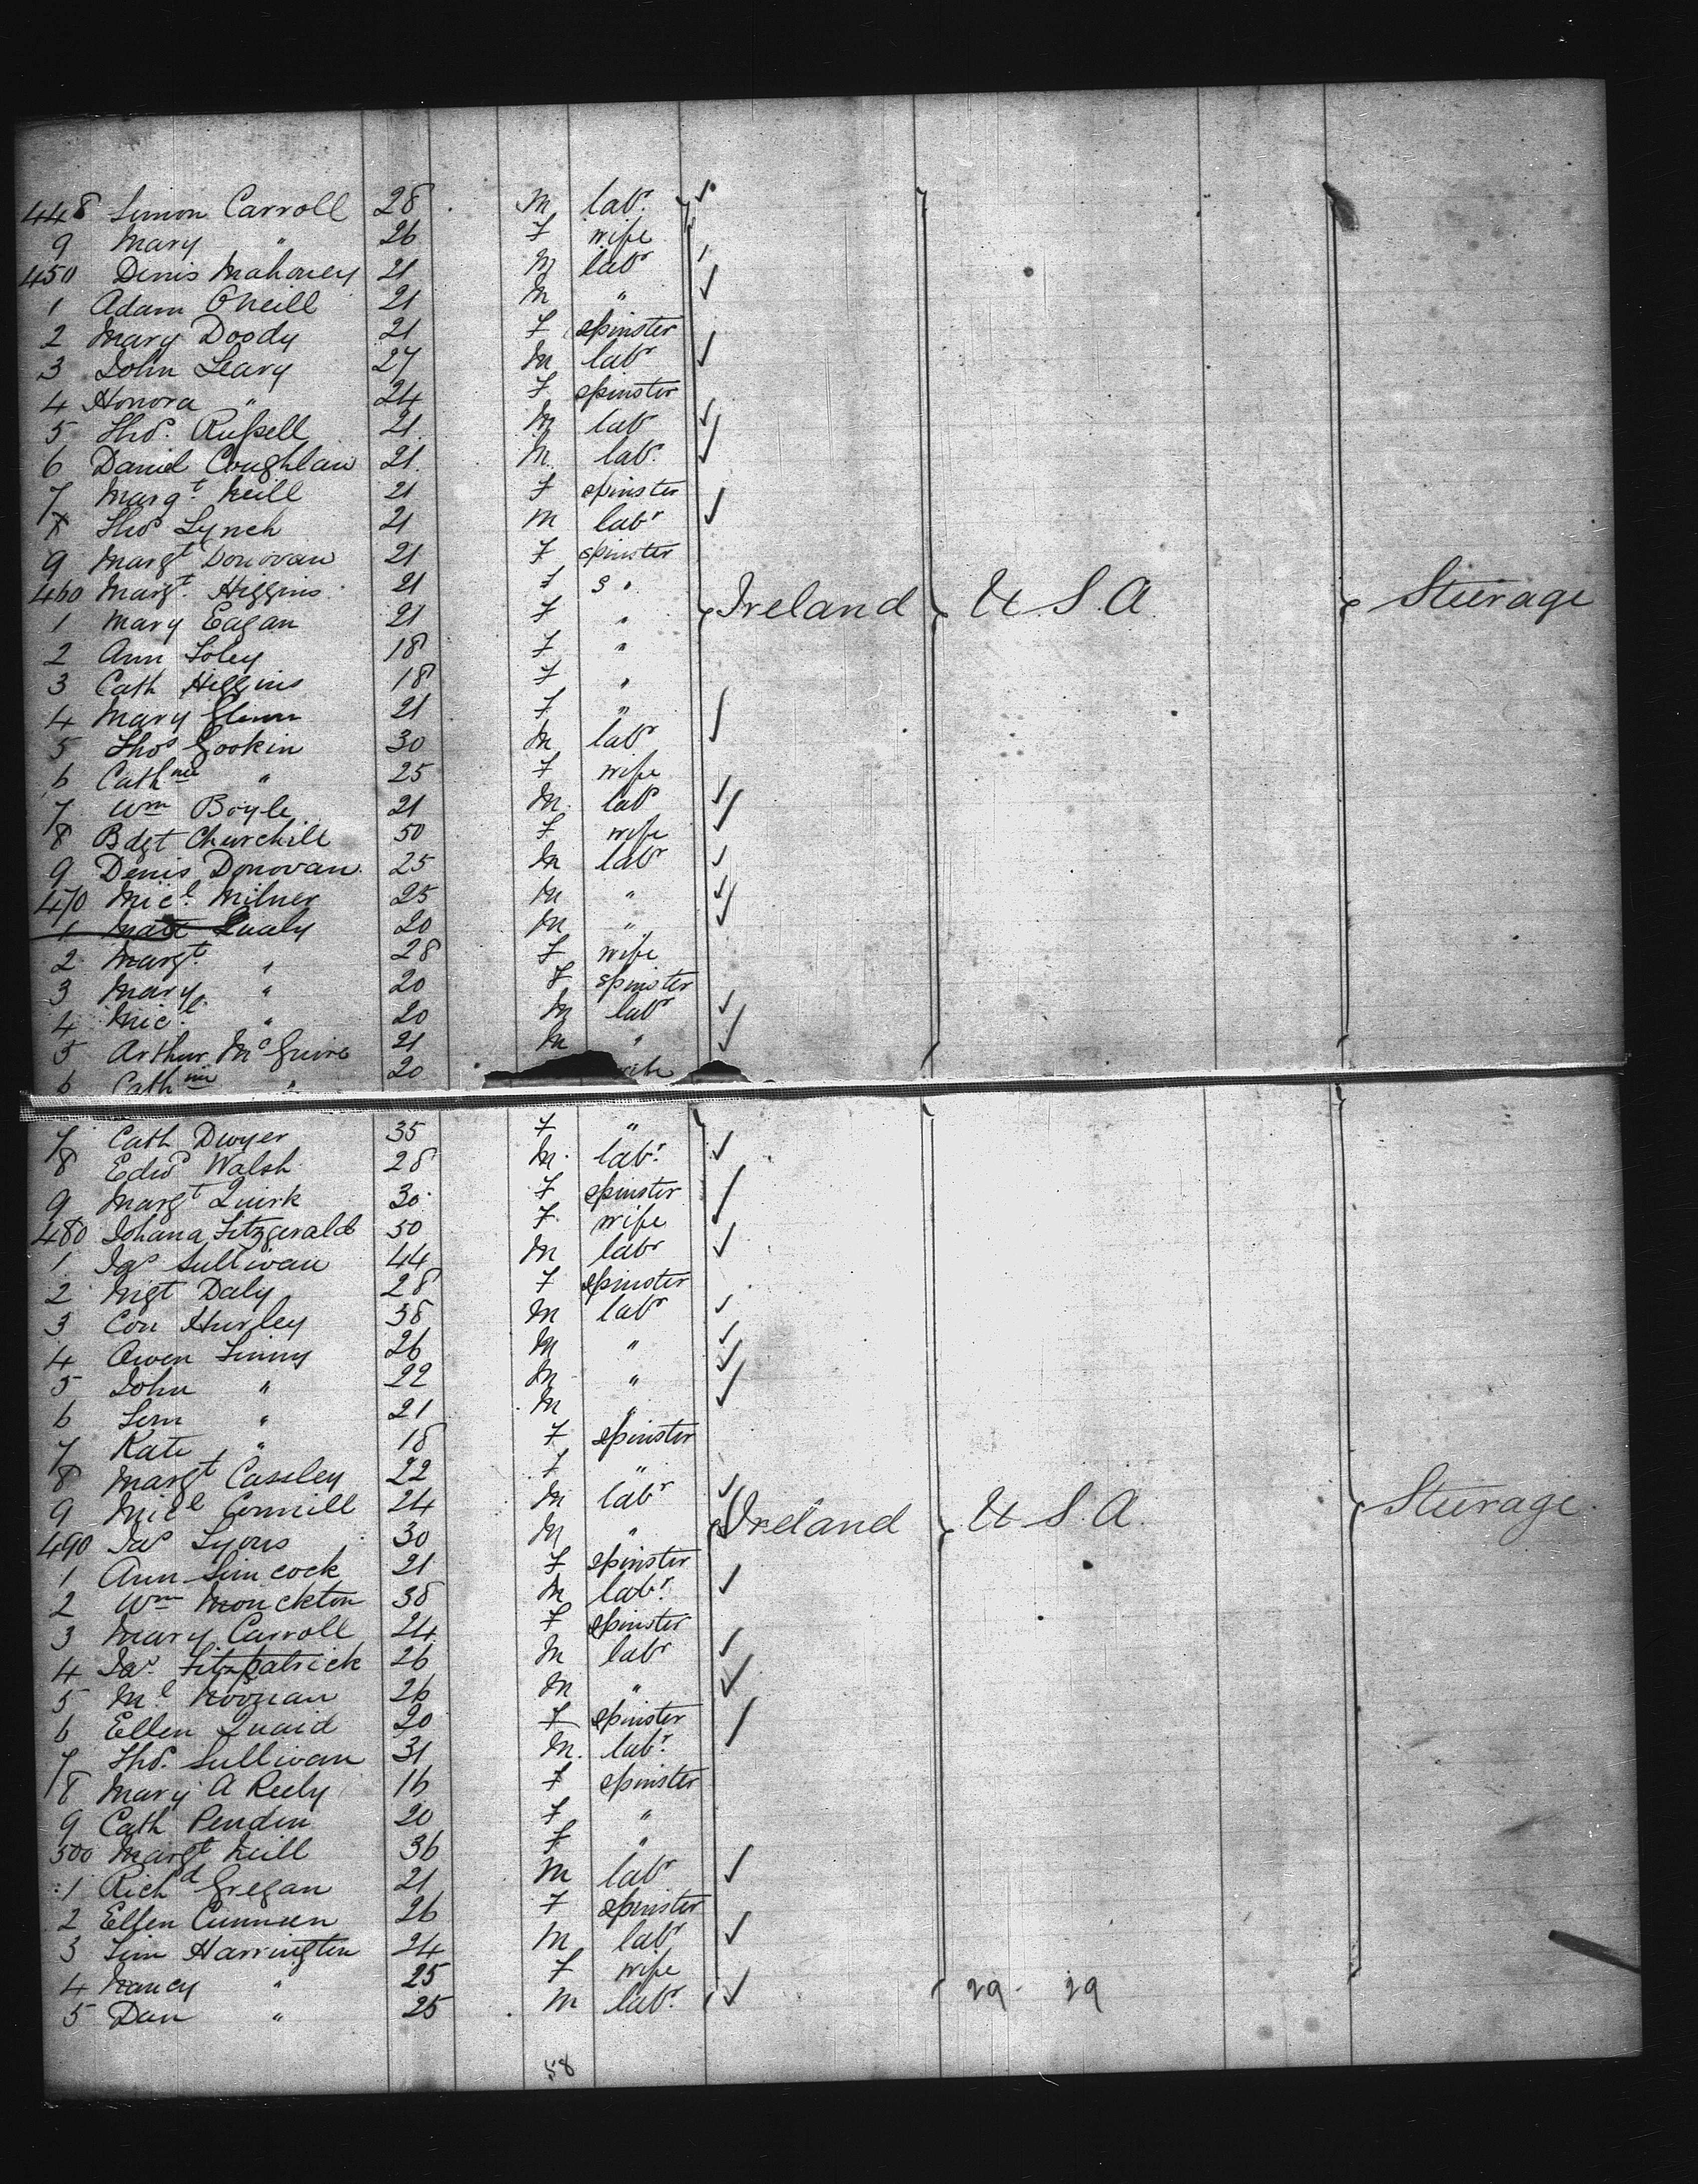 448 Simon Carroll 28 M labr
9 Mary " 26 F wife
450 Denis Mahoney 21 M labr
1 Adam ONeill 21 M "
2 Mary Doody 21 F spinster
3 John Leary 27 M labr
4 Honora " 24 F spinster
5 Thos. Russell 21 M lab
6 Daniel Coughlan 21 M labr
7 Margt. Neill 21 F spinster
8 Thos Lynch 21 M labr
9 Margt Donovan 21 F spinster
460 Margt. Higgins 21 F S "
Ireland U S. A Steerage
1 Mary Eagan 21 F "
2 Ann Foley 18 F "
3 Cath Higgins 18 F "
4 Mary Glenn 21 F "
5 Thos Gookin 30 M labr
6 Cathne " 25 F wife
7 Wm Boyle 21 M. labr
8 Bdgt Churchill 50 F wife
9 Denis Donovan 25 M labr
470 Micl. Milner 25 M "
1 Matt 20 M "
2 Margt " 28 F wife
3 Mary " 20 F spinster
4 Micl. " 20 M labr
5 Arthur McGuire 21 M "
6 Cathne " 20 wife
7 Cath Dwyer 35 F "
8 Edwd Walsh 28 M. labr.
9 Margt Quirk 30 F spinster
480 Johana Fitzgerald 50 F wife
1 Jas Sullivan 44 M labr
2 Mgt Daly 28 F spinster
3 Con Hurley 38 M labr
4 Owen Finny 26 M "
5 John " 22 M "
6 " 21 M "
7 Kate " 18 F spinster
8 Margt Cassley 22 F "
9 Micl Connill 24 M labr
490 Jas Lyons 30 M "
Ireland U S. A. Steerage.
1 Ann Simcock 21 F spinster
2 Wm Monckton 38 M labr.
3 Mary Carroll 24 F spinster
4 Jas. Fitzpatrick 26 M labr
5 Ml. Noonan 26 M "
6 Ellen Quaid 20 F spinster
7 Thos. Sullivan 31 M. labr.
8 Mary A Reely 16 F spinster
9 Cath Penden 20 F "
500 Margt Neill 36 F "
1 Richd Gregan 21 M labr
2 Ellen 26 F spinster
3 Tim Harrington 24 M labr
4 Nancy " 25 F wife
5 Dan " 25 M labr.
29. 29
58